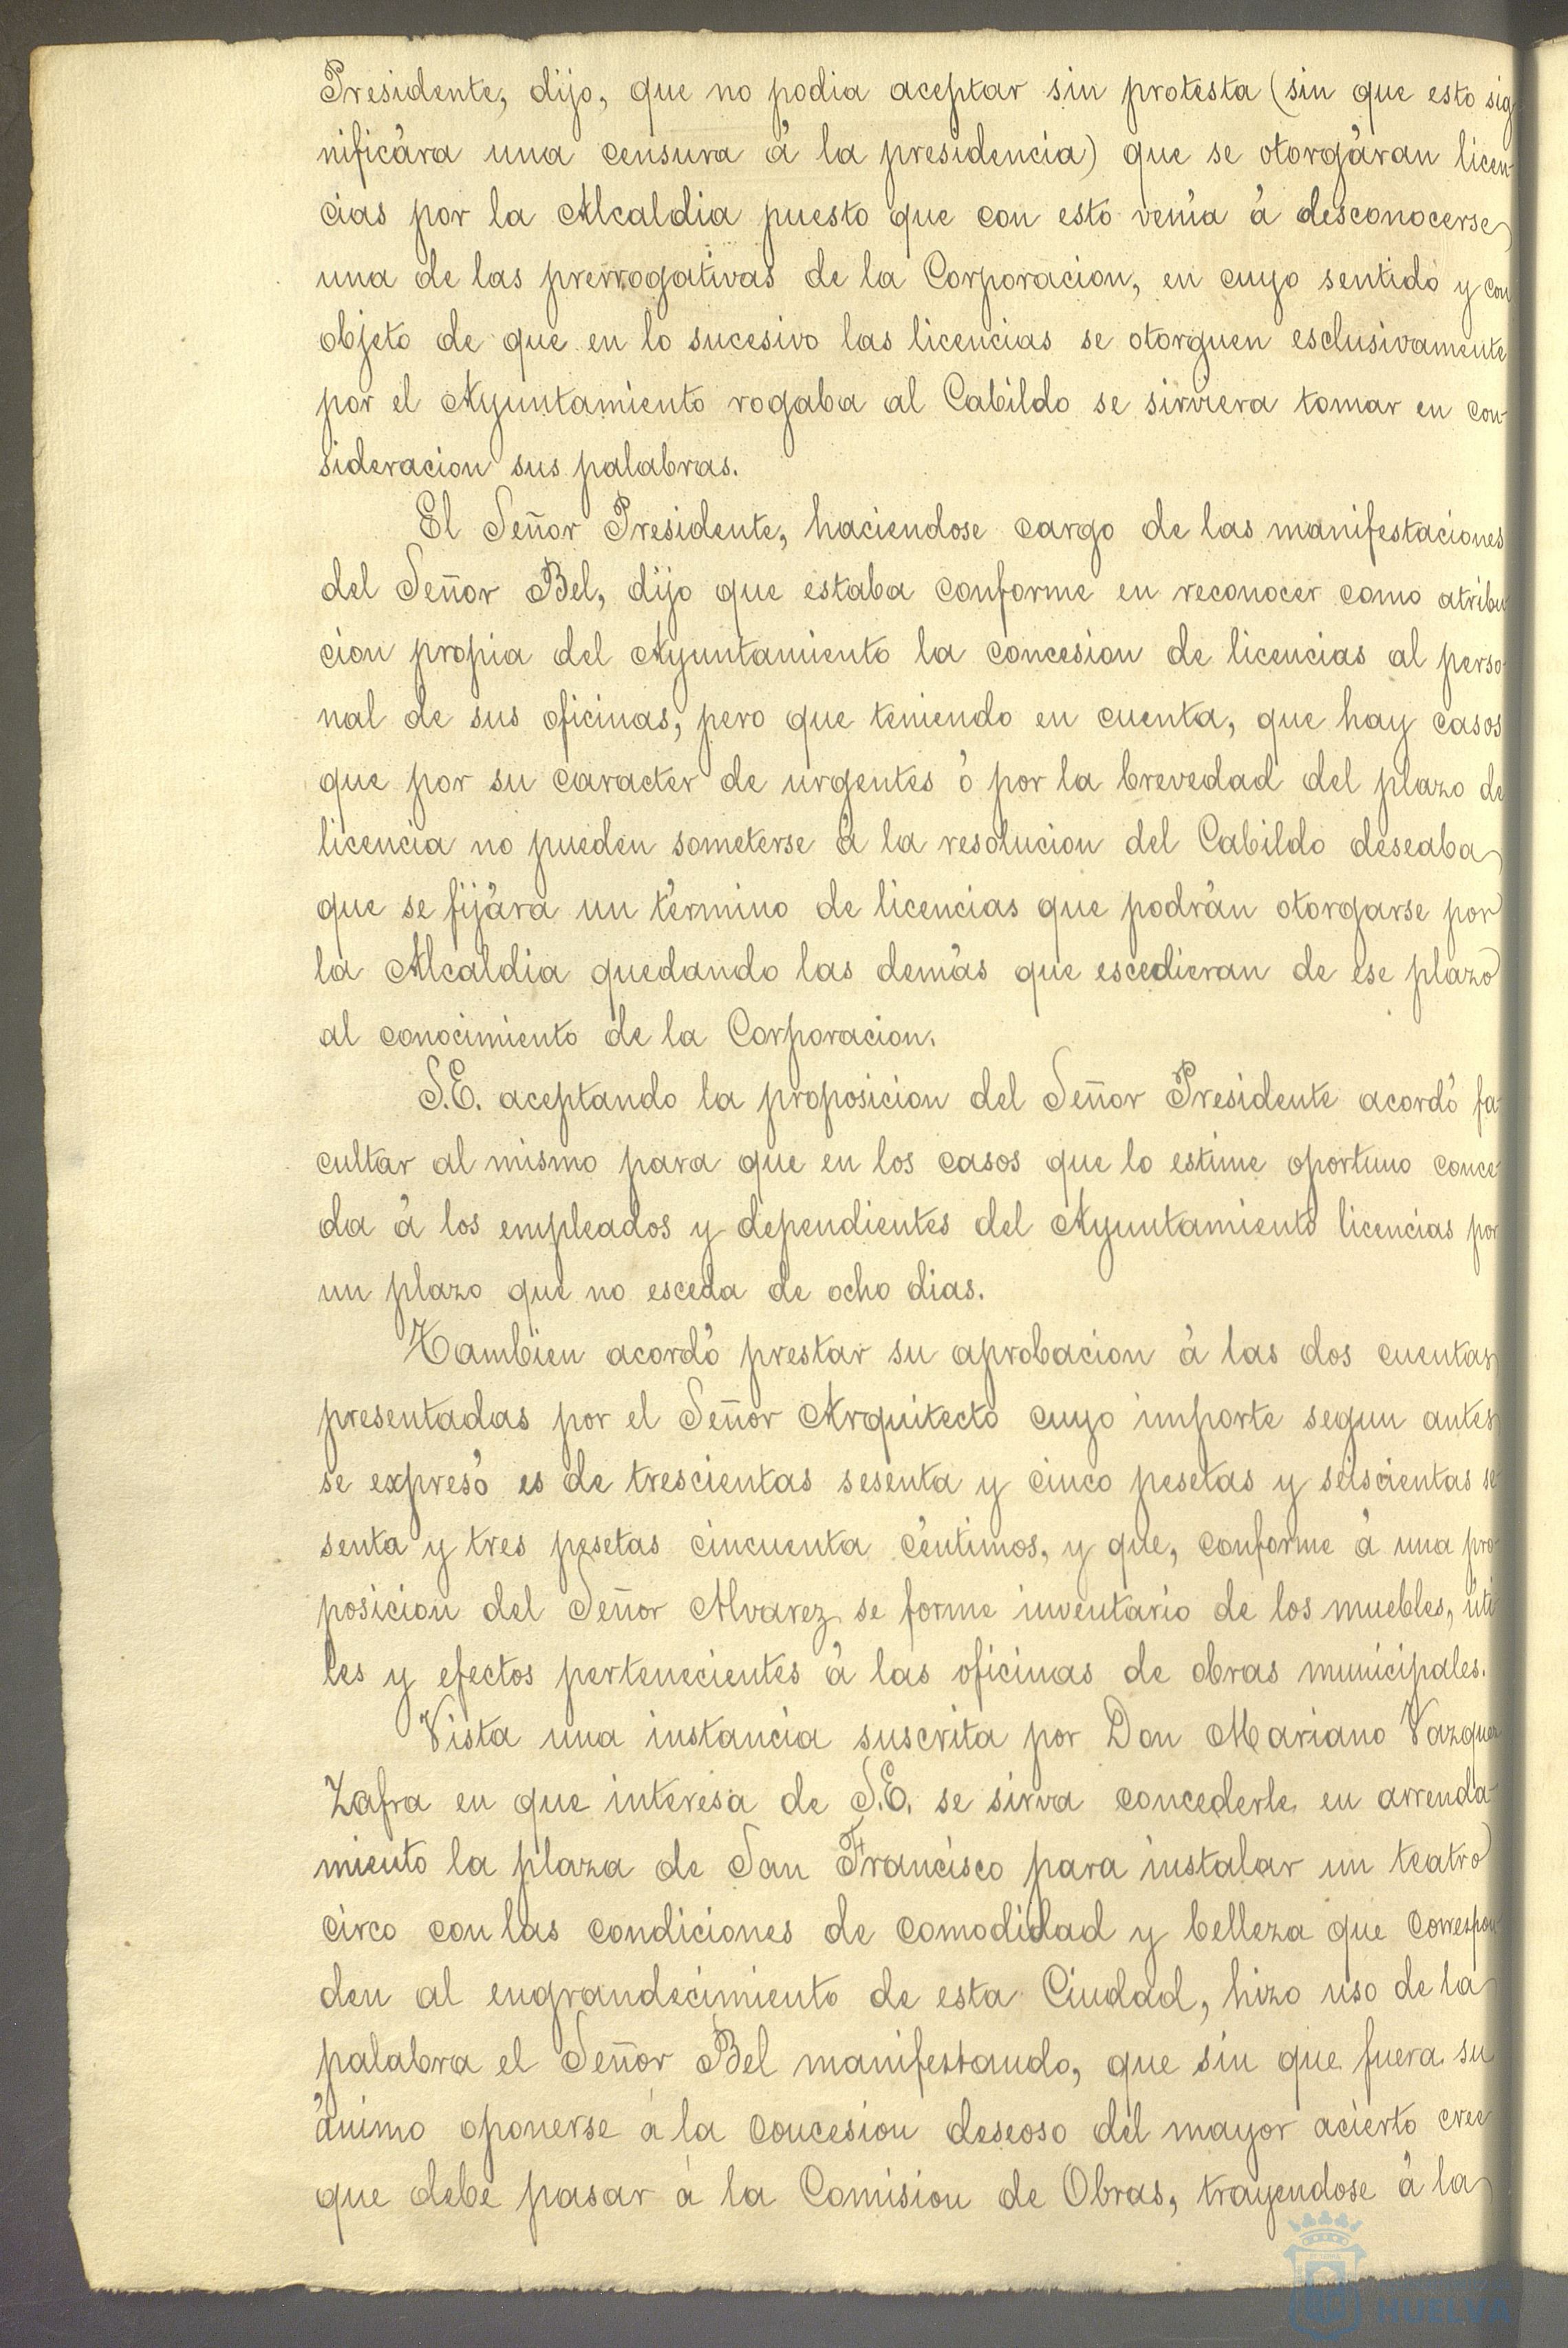 Presidente, dijo, que no podia aceptar sin protesta (sin que esto sig
nificára una censura á la presidencia) que se otorgáran licen-
cias por la Alcaldia puesto que con esto venia á desconocerse
una de las prerrogativas de la Corporacion, en cuyo sentido y con
objeto de que en lo sucesivo las licencias se otorguen esclusivamente
por el Ayuntamiento rogaba al Cabildo se sirviera tomar en con-
sideracion sus palabras.
El Señor Presidente, haciendose cargo de las manifestaciones
del Señor Bel, dijo que estaba conforme en reconocer como atribu
cion propia del Ayuntamiento la concesion de licencias al perso-
nal de sus oficinas, pero que teniendo en cuenta, que hay casos
que por su caracter de urgentes ó por la brevedad del plazo de
licencia no pueden someterse á la resolucion del Cabildo deseaba
que se fijára un término de licencias que podrán otorgarse por
la Alcaldia quedando las demás que escedieran de ese plazo
al conocimiento de la Corporacion.
S.E. aceptando la proposicion del Señor Presidente acordó fa-
cultar al mismo para que en los casos que lo estime oportuno conce-
da á los empleados y dependientes del Ayuntamiento licencias por
un plazo que no esceda de ocho dias.
Tambien acordó prestar su aprobacion á las dos cuentas
presentadas por el Señor Arquitecto cuyo importe segun antes
se expresó es de trescientas sesenta y cinco pesetas y seiscientas se
senta y tres pesetas cincuenta céntimos, y que, conforme á una pro-
posicion del Señor Alvarez se forme inventario de los muebles, úti
les y efectos pertenecientes á las oficinas de obras municipales.
Vista una instancia suscrita por Don Mariano Vazquez
Zafra en que interesa de S.E. se sirva concederle en arrenda-
miento la plaza de San Francisco para instalar un teatro
circo con las condiciones de comodidad y belleza que correspon
den al engrandecimiento de esta Ciudad, hizo uso de la
palabra el Señor Bel manifestando, que sin que fuera su
ánimo oponerse á la concesion deseoso del mayor acierto cree
que debe pasar á la Comision de Obras, trayendose á la
HUELVA